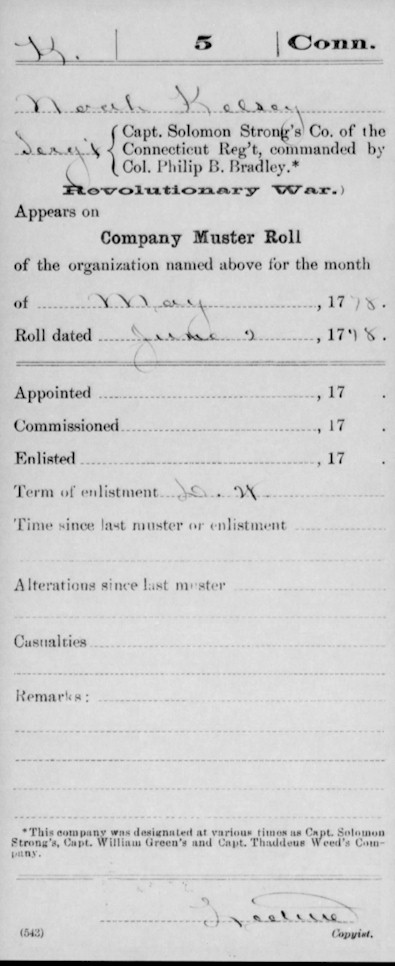 K. | 5 | Conn.
Noah Kelsey
Serg't { Capt. Solomon Strong's Co. of the
Connecticut Reg't, commanded by
Col. Philip B. Bradley.*
Revolutionary War.)
Appears on
Company Muster Roll
of the organization named above for the month
of May, 1778.
Roll dated June 2, 1778.
Appointed , 17 .
Commissioned , 17 .
Enlisted , 17 .
Term of enlistment D. W
Time since last muster or enlistment
Alterations since last muster
Casualties
Remarks:
*This company was designated at various times as Capt. Solomon
Strong's, Capt. William Green's and Capt. Thaddeus Weed's Com-
pany.
(543) Copyist.